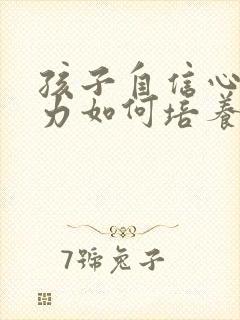 孩子自信心
力如何培养
7號兔子